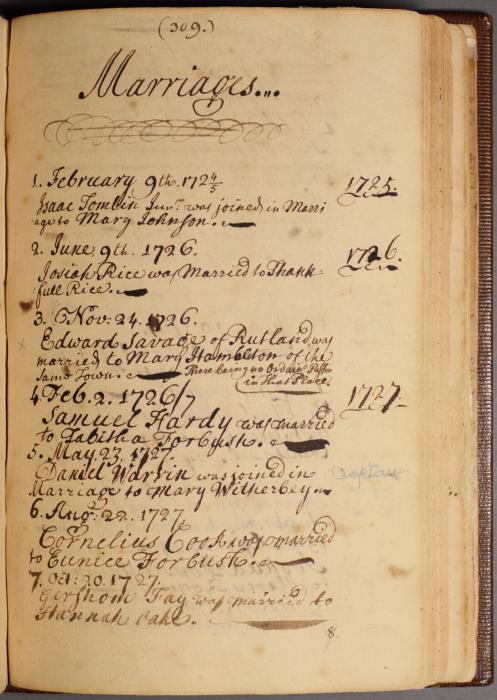 (309.)
Marriages...
1. February 9th. 172 4/5 1725.
Isaac Tomlin Junr. was joined in Marri
age to Mary Johnson.
2. June 9th. 1726. 1726.
Josiah Rice was Married to Thank-
full Rice.
3. Nov: 24. 1726.
Edward Savage of Rutland was
married to Mary Hambleton of the
same Town. There being no Ordain'd
in That Place.
4. Feb. 2. 1726/7 1727
Samuel Hardy was married
to Tabitha Forbush.
5. May. 23. 1727.
Daniel Warrin was joined in
Marriage to Mary Witherbey
6. Augt. 22. 1727
Cornelius Cook was married
to Eunice Forbush.
7. Oct: 20. 1727.
Gershom Fay was married to
Hannah Oake.
8.